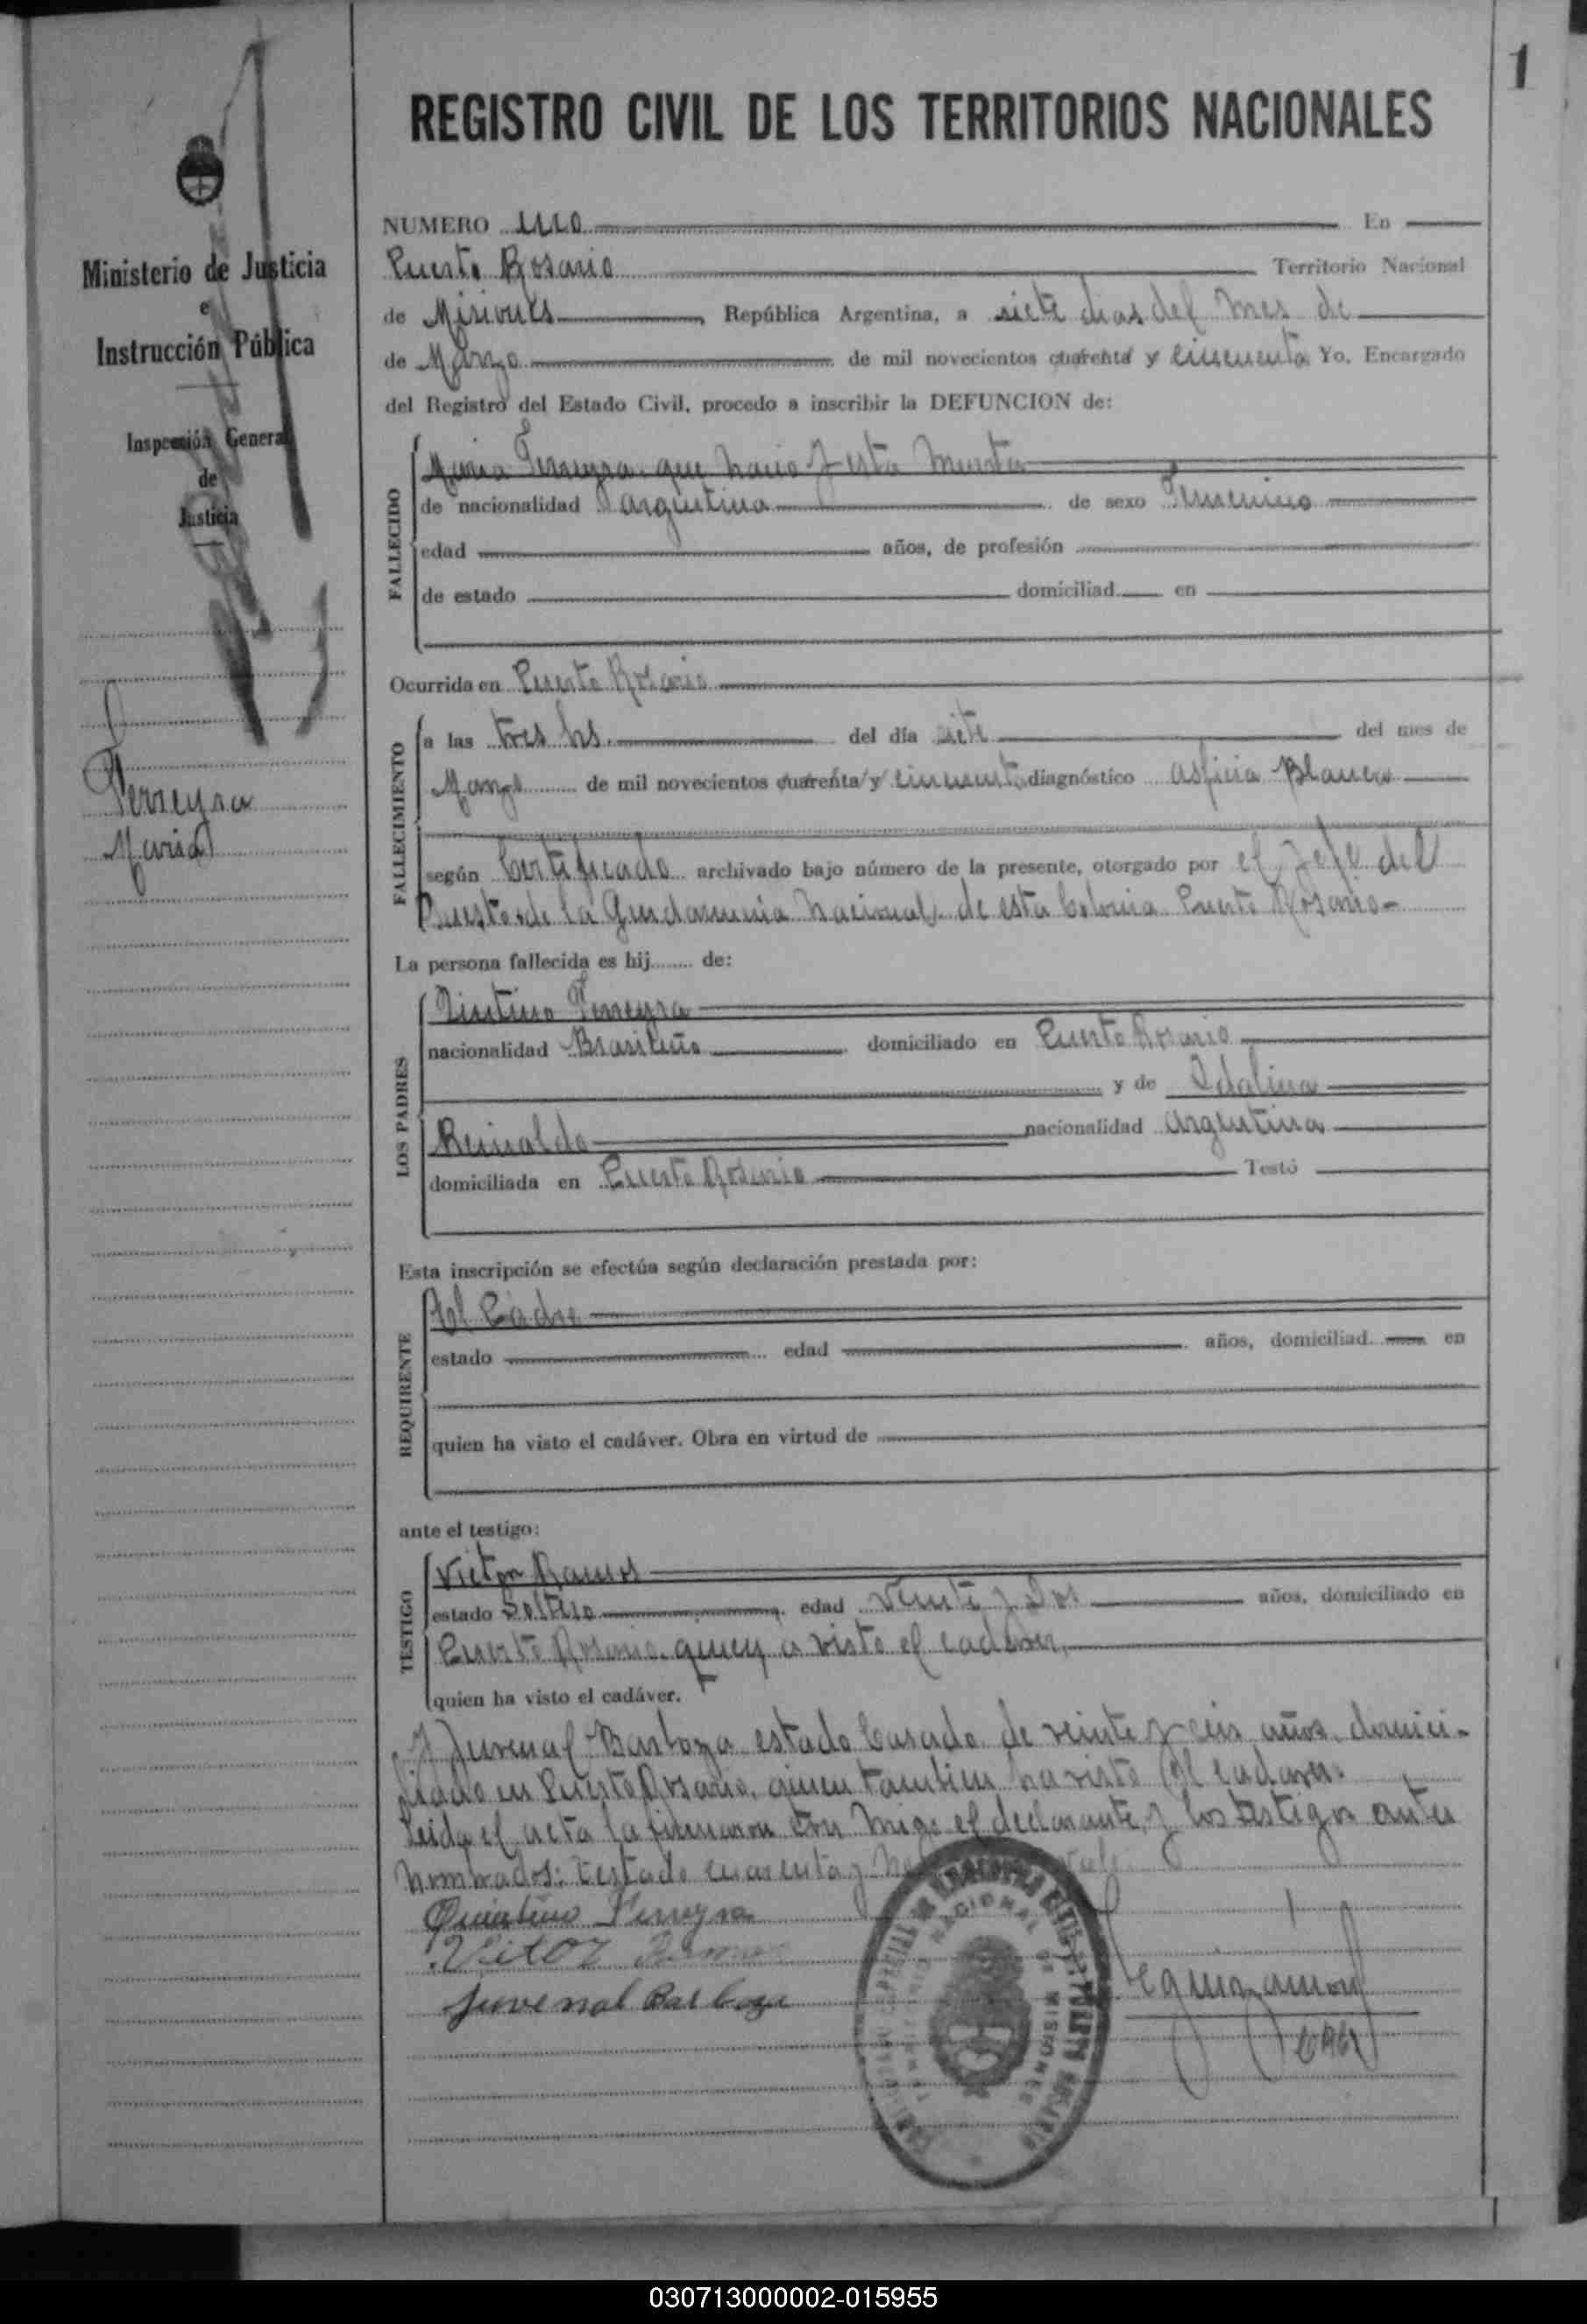 1
REGISTRO CIVIL DE LOS TERRITORIOS NACIONALES
Ministerio de Justicia
e
Instrucción Pública
Inspección General
de
Justicia
Ferreyra
Maria
NUMERO uno En
Puerto Rosario Territorio Nacional
de Misiones, República Argentina, a siete dias del mes de
de Marzo de mil novecientos cuarenta y cincuenta Yo, Encargado
del Registro del Estado Civil, procedo a inscribir la DEFUNCION de:
FALLECIDO
Maria Ferreyra que nacio y esta muerta
de nacionalidad argentina de sexo Femenino
edad años, de profesión
de estado domiciliad en
Ocurrida en Puerto Rosario
FALLECIMIENTO
a las tres hs. del día siete del mes de
Marzo de mil novecientos cuarenta y cincuenta diagnóstico asficia Blanca
según Certificado archivado bajo número de la presente, otorgado por el Jefe del
Puesto de la Gendarmeria Nacional de esta Colonia Puerto Rosario-
La persona fallecida es hij de:
LOS PADRES
Quintino Ferreyra
nacionalidad Brasileño domiciliado en Puerto Rosario
y de Idalina
Reinaldo nacionalidad argentina
domiciliada en Puerto Rosario Testó
Esta inscripción se efectúa según declaración prestada por:
REQUIRENTE
El Padre
estado edad años, domiciliad en
quien ha visto el cadáver. Obra en virtud de
ante el testigo:
TESTIGO
Victor Ramos
estado Soltero edad veinte y Dos años, domiciliado en
Puerto Rosario, quien a visto el cadaver,
quien ha visto el cadáver.
y Juvenal Barboza estado Casado de veinte y seis años, domici-
liado en Puerto Rosario, quien tambien ha visto el cadaver.
Leida el acta la firmaron con migo el declarante y los testigos antes
nombrados: Testado cuarenta y Vale
Quintino Ferreyra
Vitor Ramos
Juvenal Barboza
NACIONAL DE MISIONES
030713000002-015955